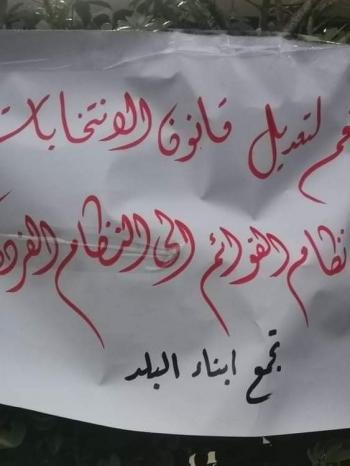 نعم لتعديل قانون الانتخابات
نظام القوائم الى النظام الفردي
تجمع ابناء البلد